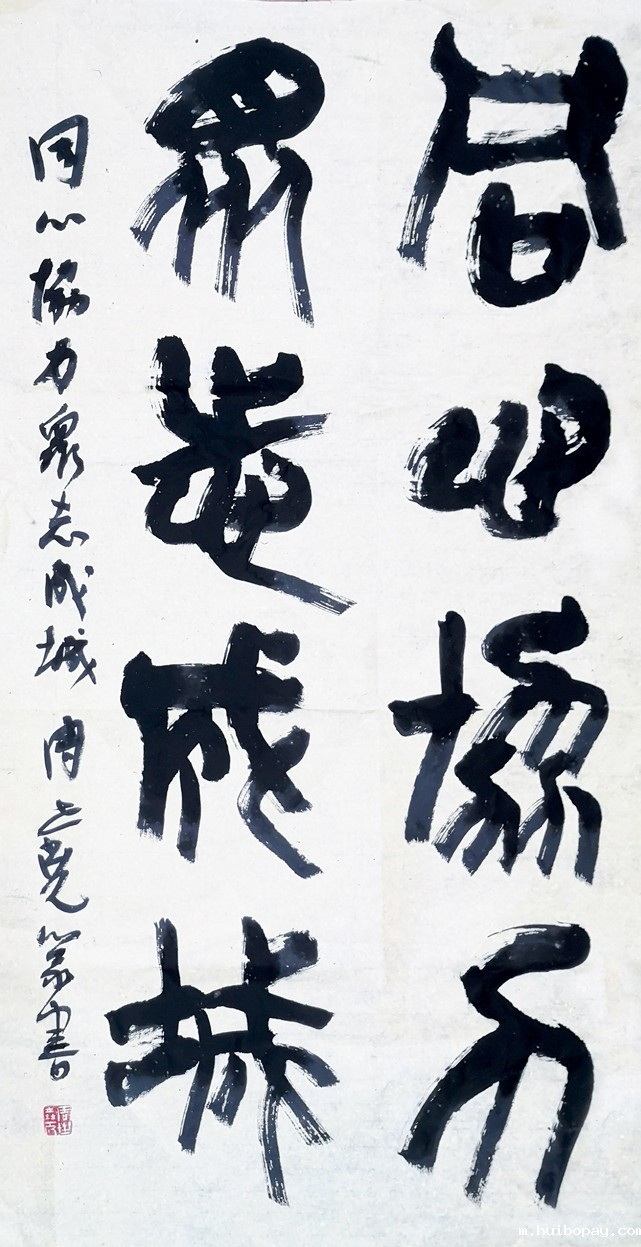 同心協力
眾志成城
同心協力衆志成城 篆書
m.huibopay.com